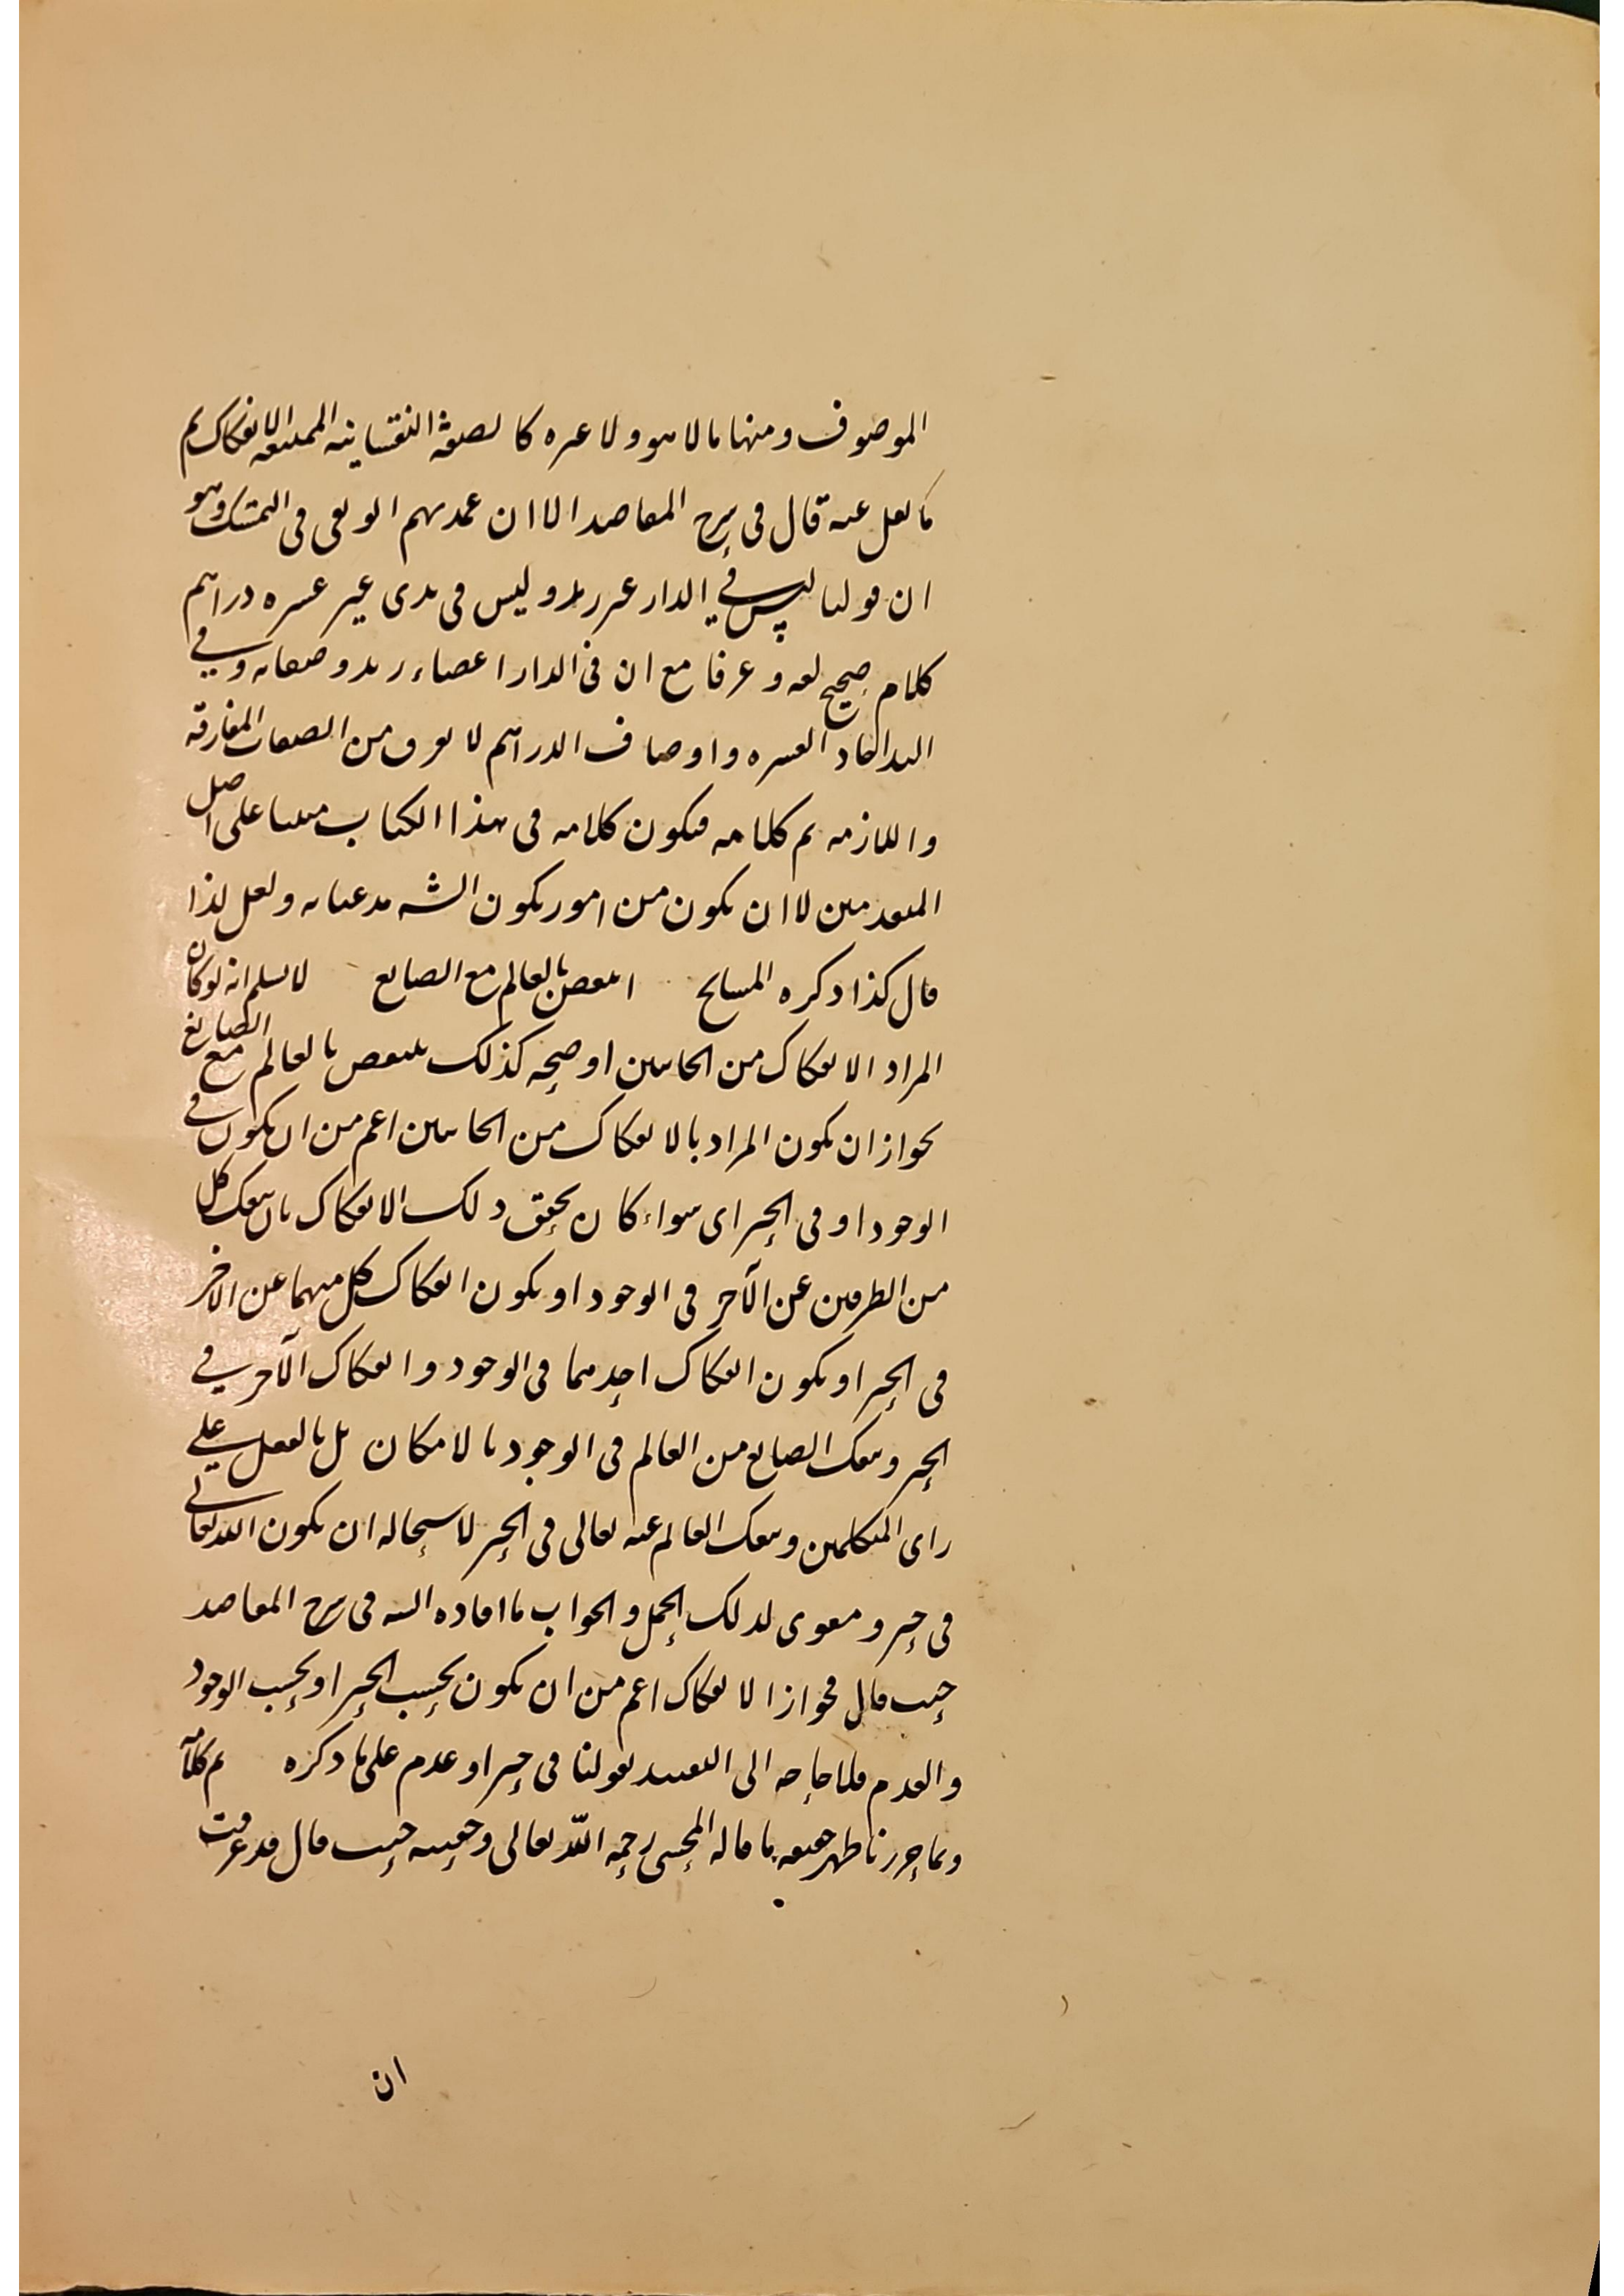 الموصوف ومنها ما لا هو ولا غيره كالصفة النفسانية الممتنعة الانفكاك تم
ما نقل عنه قال فى شرح المقاصد الا ان عمدتهم الوثقى فى التمسك وهو
ان قولنا ليس في الدار غير زيد وليس فى يدى غير عشرة دراهم
كلام صحيح لغة وعرفا مع ان فى الدار اعضاء زيد وصفاته وفي
اليد آحاد العشرة واوصاف الدراهم لا تعرق من الصفات المفارقة
واللازمة تم كلامه فيكون كلامه فى هذا الكتاب مبنيا على اصل
المتقدمين لا ان يكون من امور يكون الشه مدعياته ولعل لذا
قال كذا ذكره المشايخ انتقض بالعالم مع الصانع لا نسلم انه لو كان
المراد الانفكاك من الجانبين او صحته كذلك ينتقض بالعالم مع الصانع
لجواز ان يكون المراد بالانفكاك من الجانبين اعم من ان يكون في
الوجود او فى الحيز اى سواء كان تحقق ذلك الانفكاك بان ينفك كل
من الطرفين عن الآخر فى الوجود او يكون انفكاك كل منهما عن الآخر
فى الحيز او يكون انفكاك احدهما فى الوجود وانفكاك الآخر في
الحيز وينفك الصانع من العالم فى الوجود بالامكان بل بالفعل على
راى المتكلمين وينفك العالم عنه تعالى فى الحيز لاستحالة ان يكون الله تعالى
فى حيز ومقوى لذلك الحمل والجواب ما افاده الشه فى شرح المقاصد
حيث قال فجواز الانفكاك اعم من ان يكون بحسب الحيز او بحسب الوجود
والعدم فلا حاجة الى التقييد بقولنا فى حيز او عدم على ما ذكره تم كلامه
وبما حررنا ظهر حقيقة ما قاله المحشى رحمه الله تعالى وحقيته حيث قال قد عرفت
ان